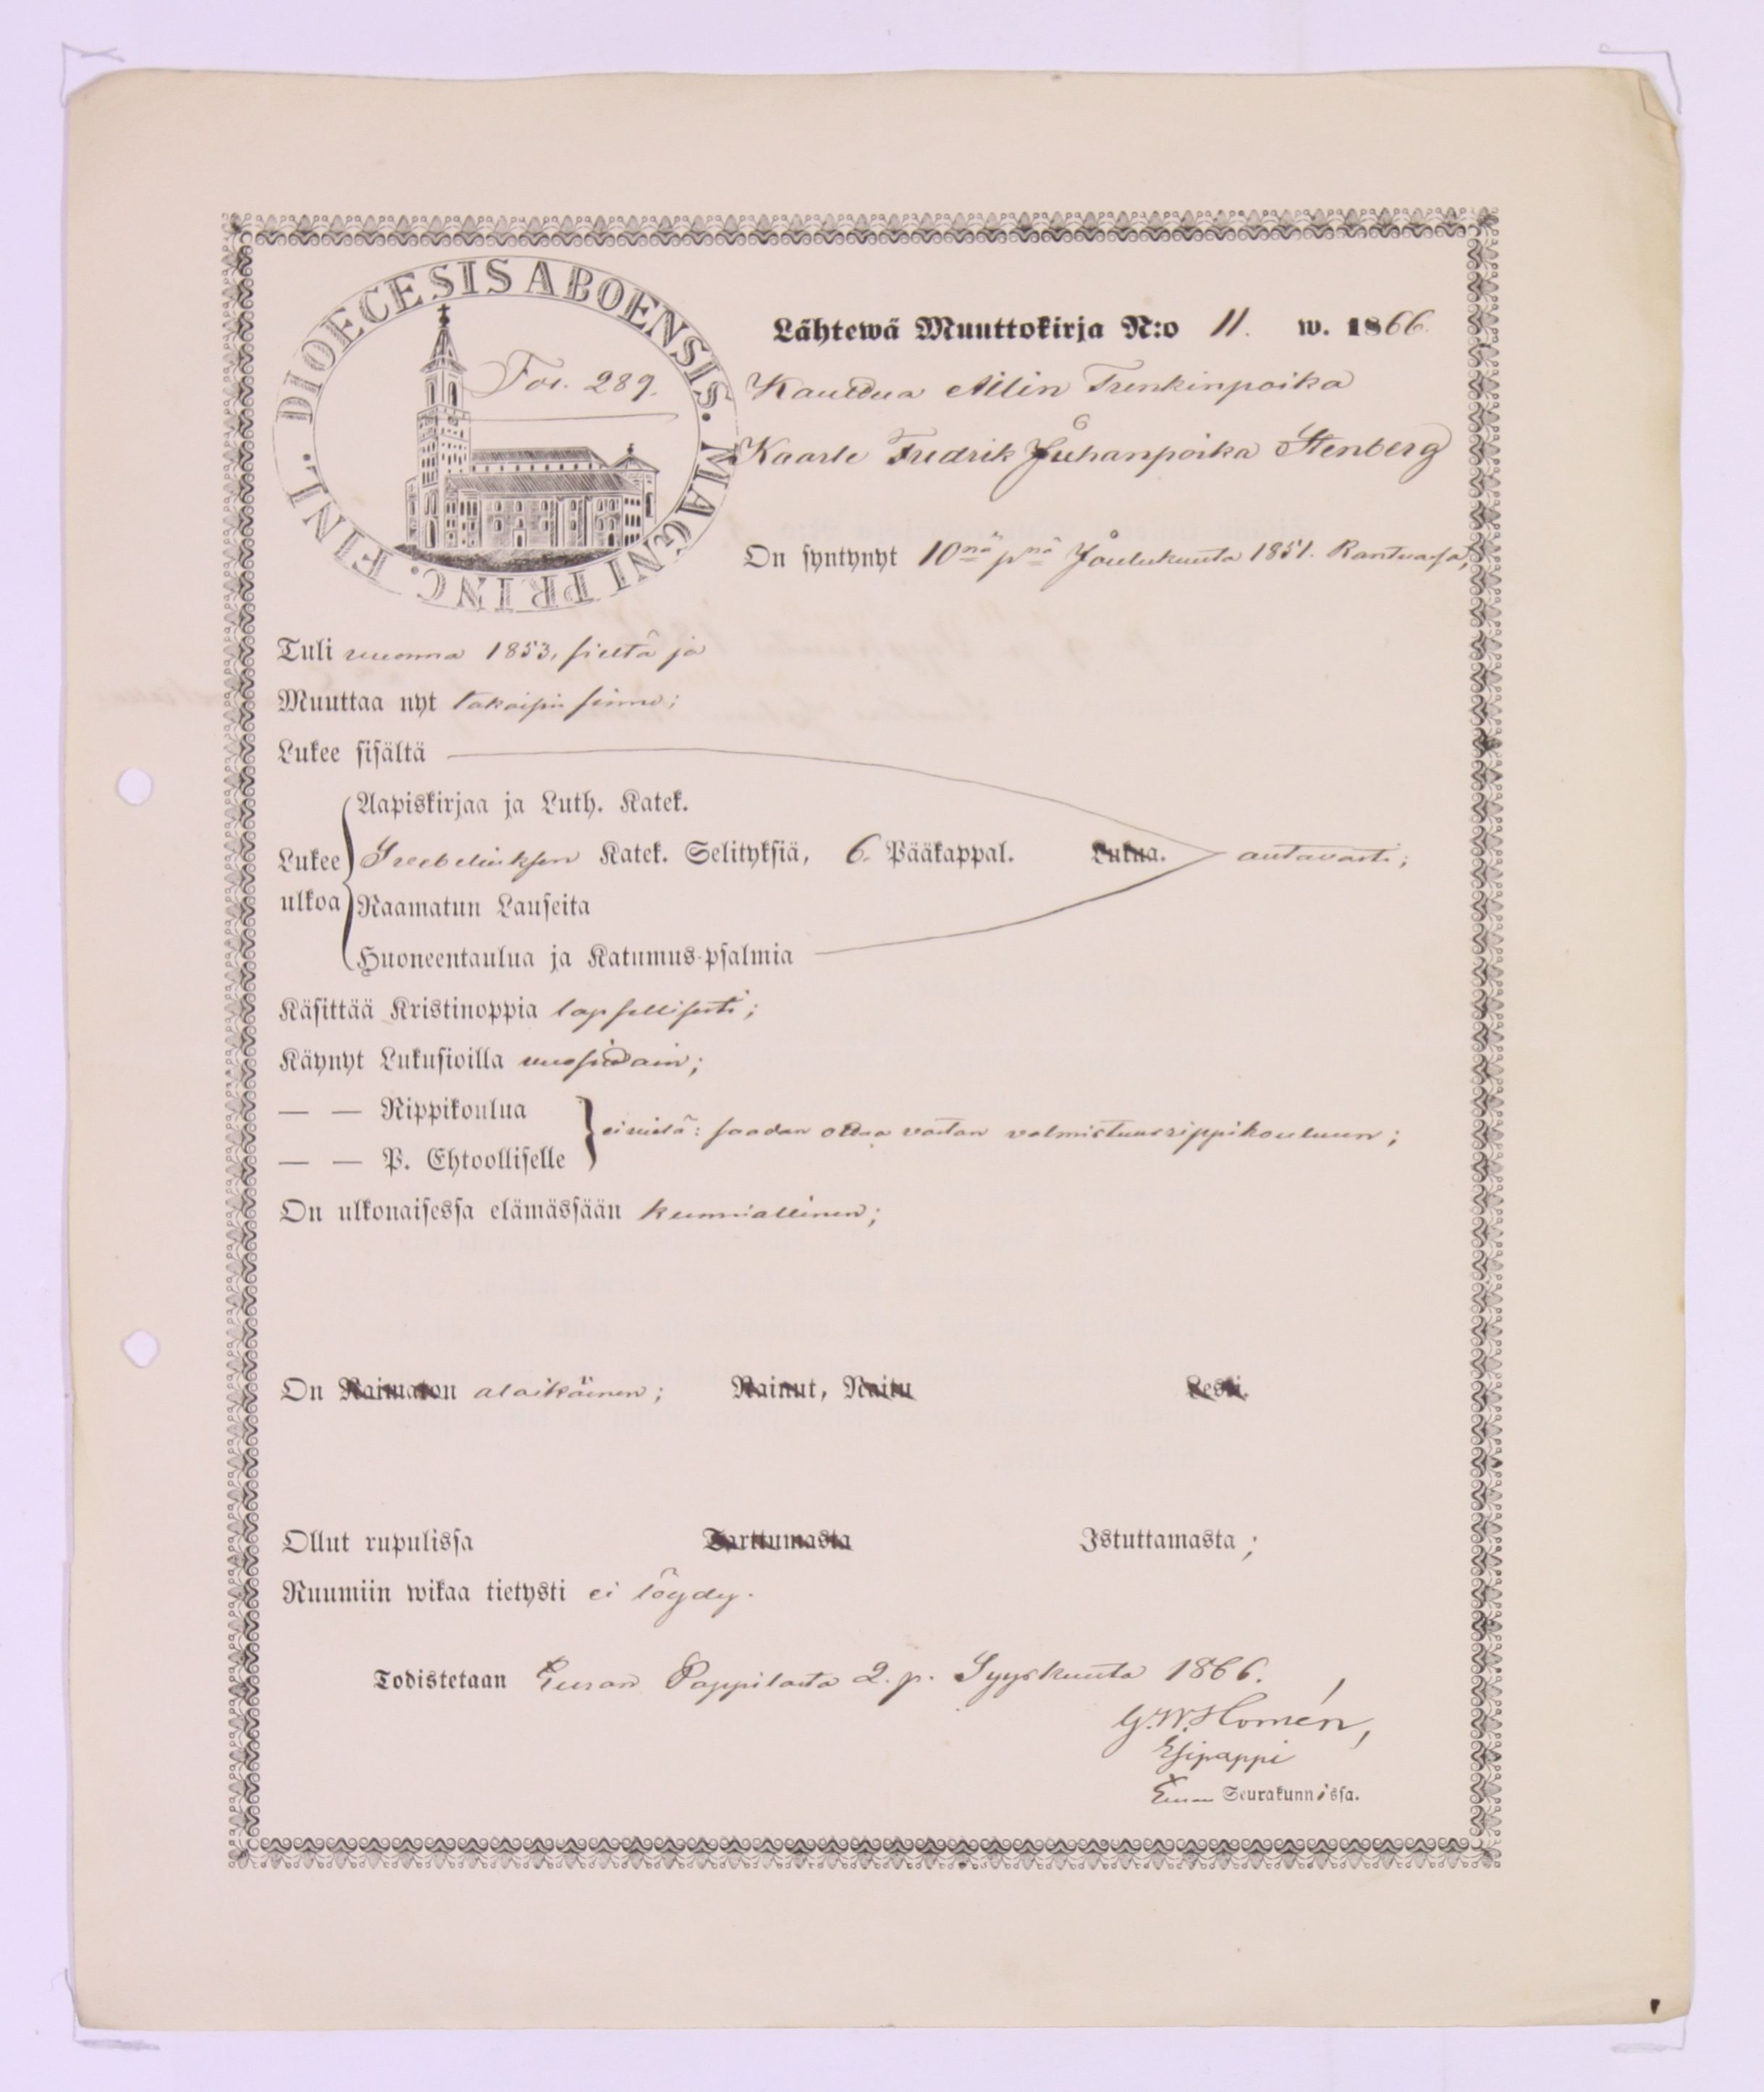 DIOECESIS ABOENSIS. MAGNI PRINC. FINL.
Fol. 289.
Lähtewä Muuttokirja N:o 11. w. 1866.
Kauttua Ailin Trenkinpoika
Kaarle Fredrik Juhanpoika Stenberg
On syntynyt 10nä pnä Joulukuuta 1851.
Tuli vuonna 1853, sieltä ja
Muuttaa nyt takaisin sinne;
Lukee sisältä
Aapiskirjaa ja Luth. Katek.
Lukee Katek. Selityksiä, 6. Pääkappal. Lukua. auttavasti;
ulkoa Raamatun Lauseita
Huoneentaulua ja Katumus-psalmia
Käsittää Kristinoppia lapsellisesti;
Käynyt Lukusioilla vuosittain;
— — Rippikoulua
ei vielä: saadan ottaa vastan valmistusrippikouluun;
— — P. Ehtoolliselle
On ulkonaisessa elämässään kunniallinen;
On Naimaton alaikäinen; Nainut, Naitu Leski.
Ollut rupulissa Tarttumasta Istuttamasta;
Ruumiin wikaa tietysti ei löydy.
Todistetaan Euran Pappilasta 2. p. Syyskuuta 1866.
G. W. Homén,
Esipappi
Euran Seurakunnissa.